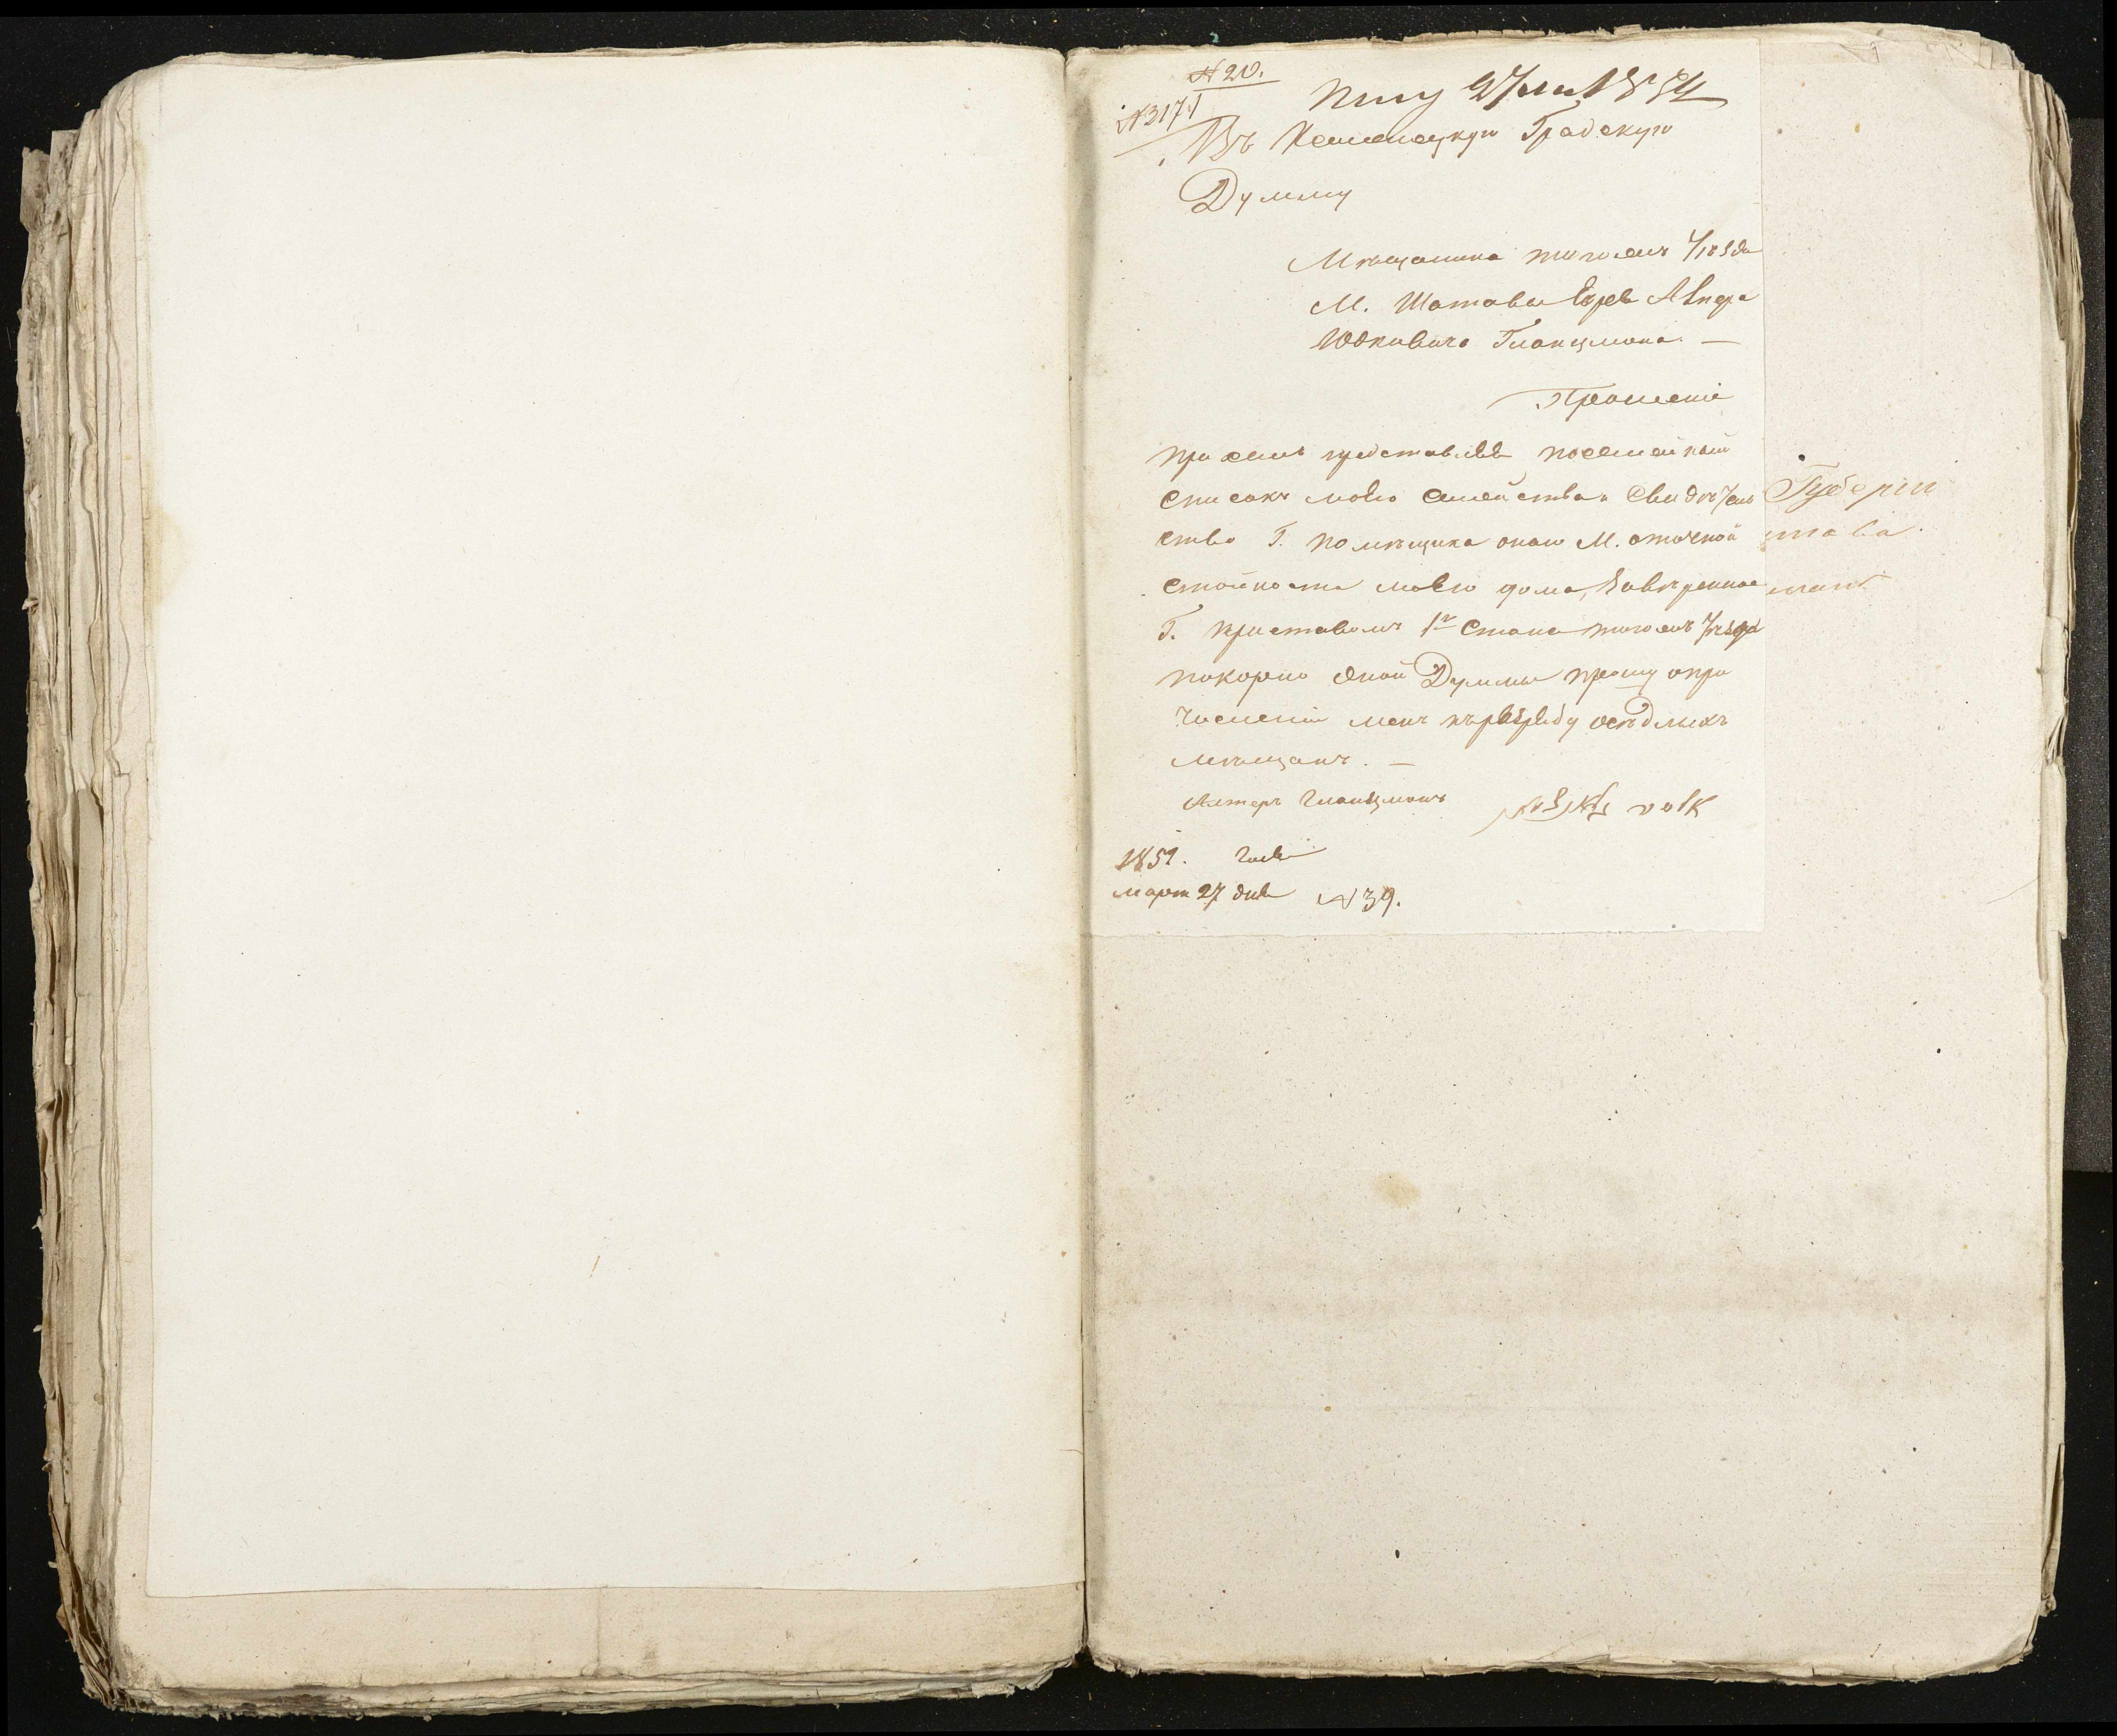 № 20.
№ 3171
Въ Каменецкую Градскую
Думму
Мѣщанина тогожъ Уѣзда
М. Шатавы Еврея
Юдковича Гланцмана. —
Прошеніе
При семъ представляя посемейный
списокъ моего семейства и свидѣтель
ство Г. помѣщика оного М.
стойности моего дома,
Г. Приставомъ 1го Стана тогожъ Уѣзда
покорно оной Думмы прошу о при
численіи менѣ къ разряду осѣдлыхъ
мѣщанъ. —
Алтеръ Гланцманъ
1851. Года
март 27 дня № 39.
Губерніи